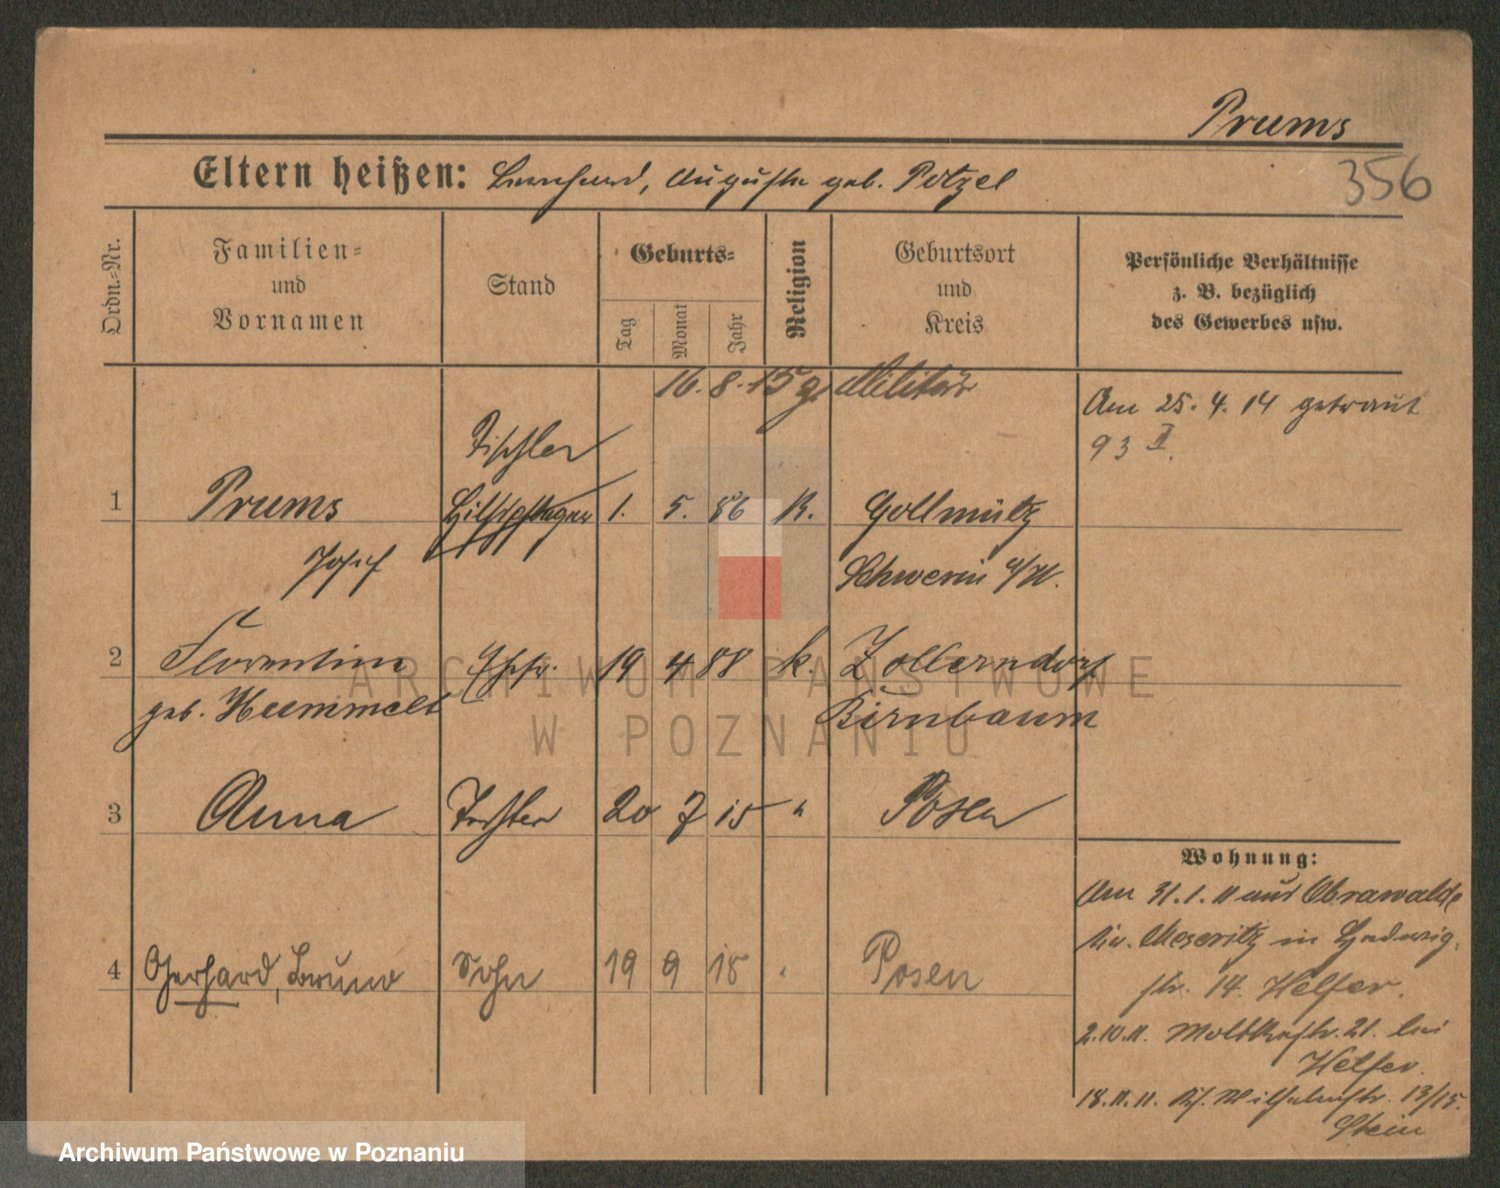 Prums
356
Eltern heißen: Bernhard, Auguste geb. Petzel
Ordn.-Nr.
Familien-
und
Vornamen
Stand
Geburts-
Tag
Monat
Jahr
Religion
Geburtsort
und
Kreis
Persönliche Verhältnisse
z. B. bezüglich
des Gewerbes usw.
16. 8. 15 z. Militär
Am 25. 4. 14 getraut
93 II.
Tischler
1 Prums Hilfspfleger 1. 5. 86 K. Gollmütz
Josef Schwerin a/W.
2 Florentine Ehefr. 19 4 88 k. Zollerndorf
geb. Hummelt Birnbaum
3 Anna Tochter 20 7 15 " Posen
Wohnung:
Am 31. 1. 11 aus Obrawalde
Kr. Meseritz in Hedwig-
str. 14. Helfer.
4 Gerhard, Bruno Sohn 19 9 18 " Posen
2.10.11. Moltkestr. 21. bei
Helfer.
18.11.11. Wilhelmstr. 13/15.
Stein
ARCHIWUM PAŃSTWOWE
W POZNANIU
Archiwum Państwowe w Poznaniu